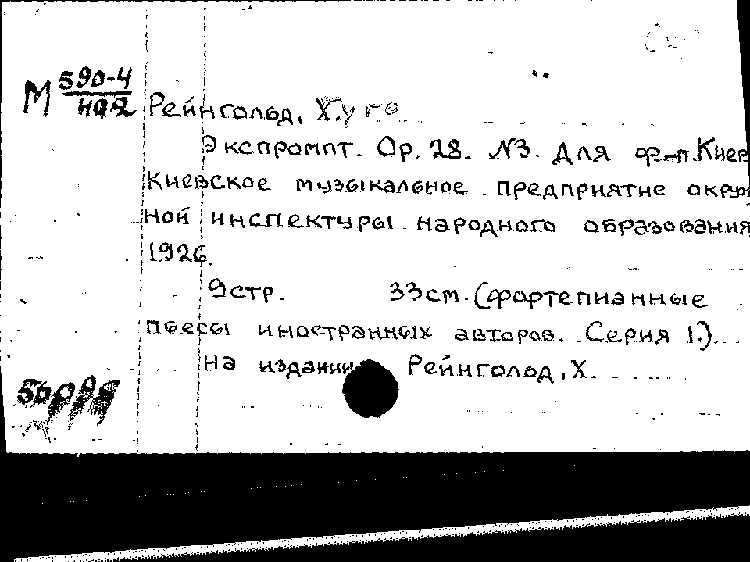 М 590-4
Рейнгольд, Хуго
Экспромпт. Ор. 28. №3. Для ф-п. Киев
Киевское музыкальное предприятие окруж
ной инспектуры народного образования
1926.
9 стр. 33 см. (фортепианные
пьесы иностранных авторов. Серия 1.)
На издании Рейнгольд, Х.